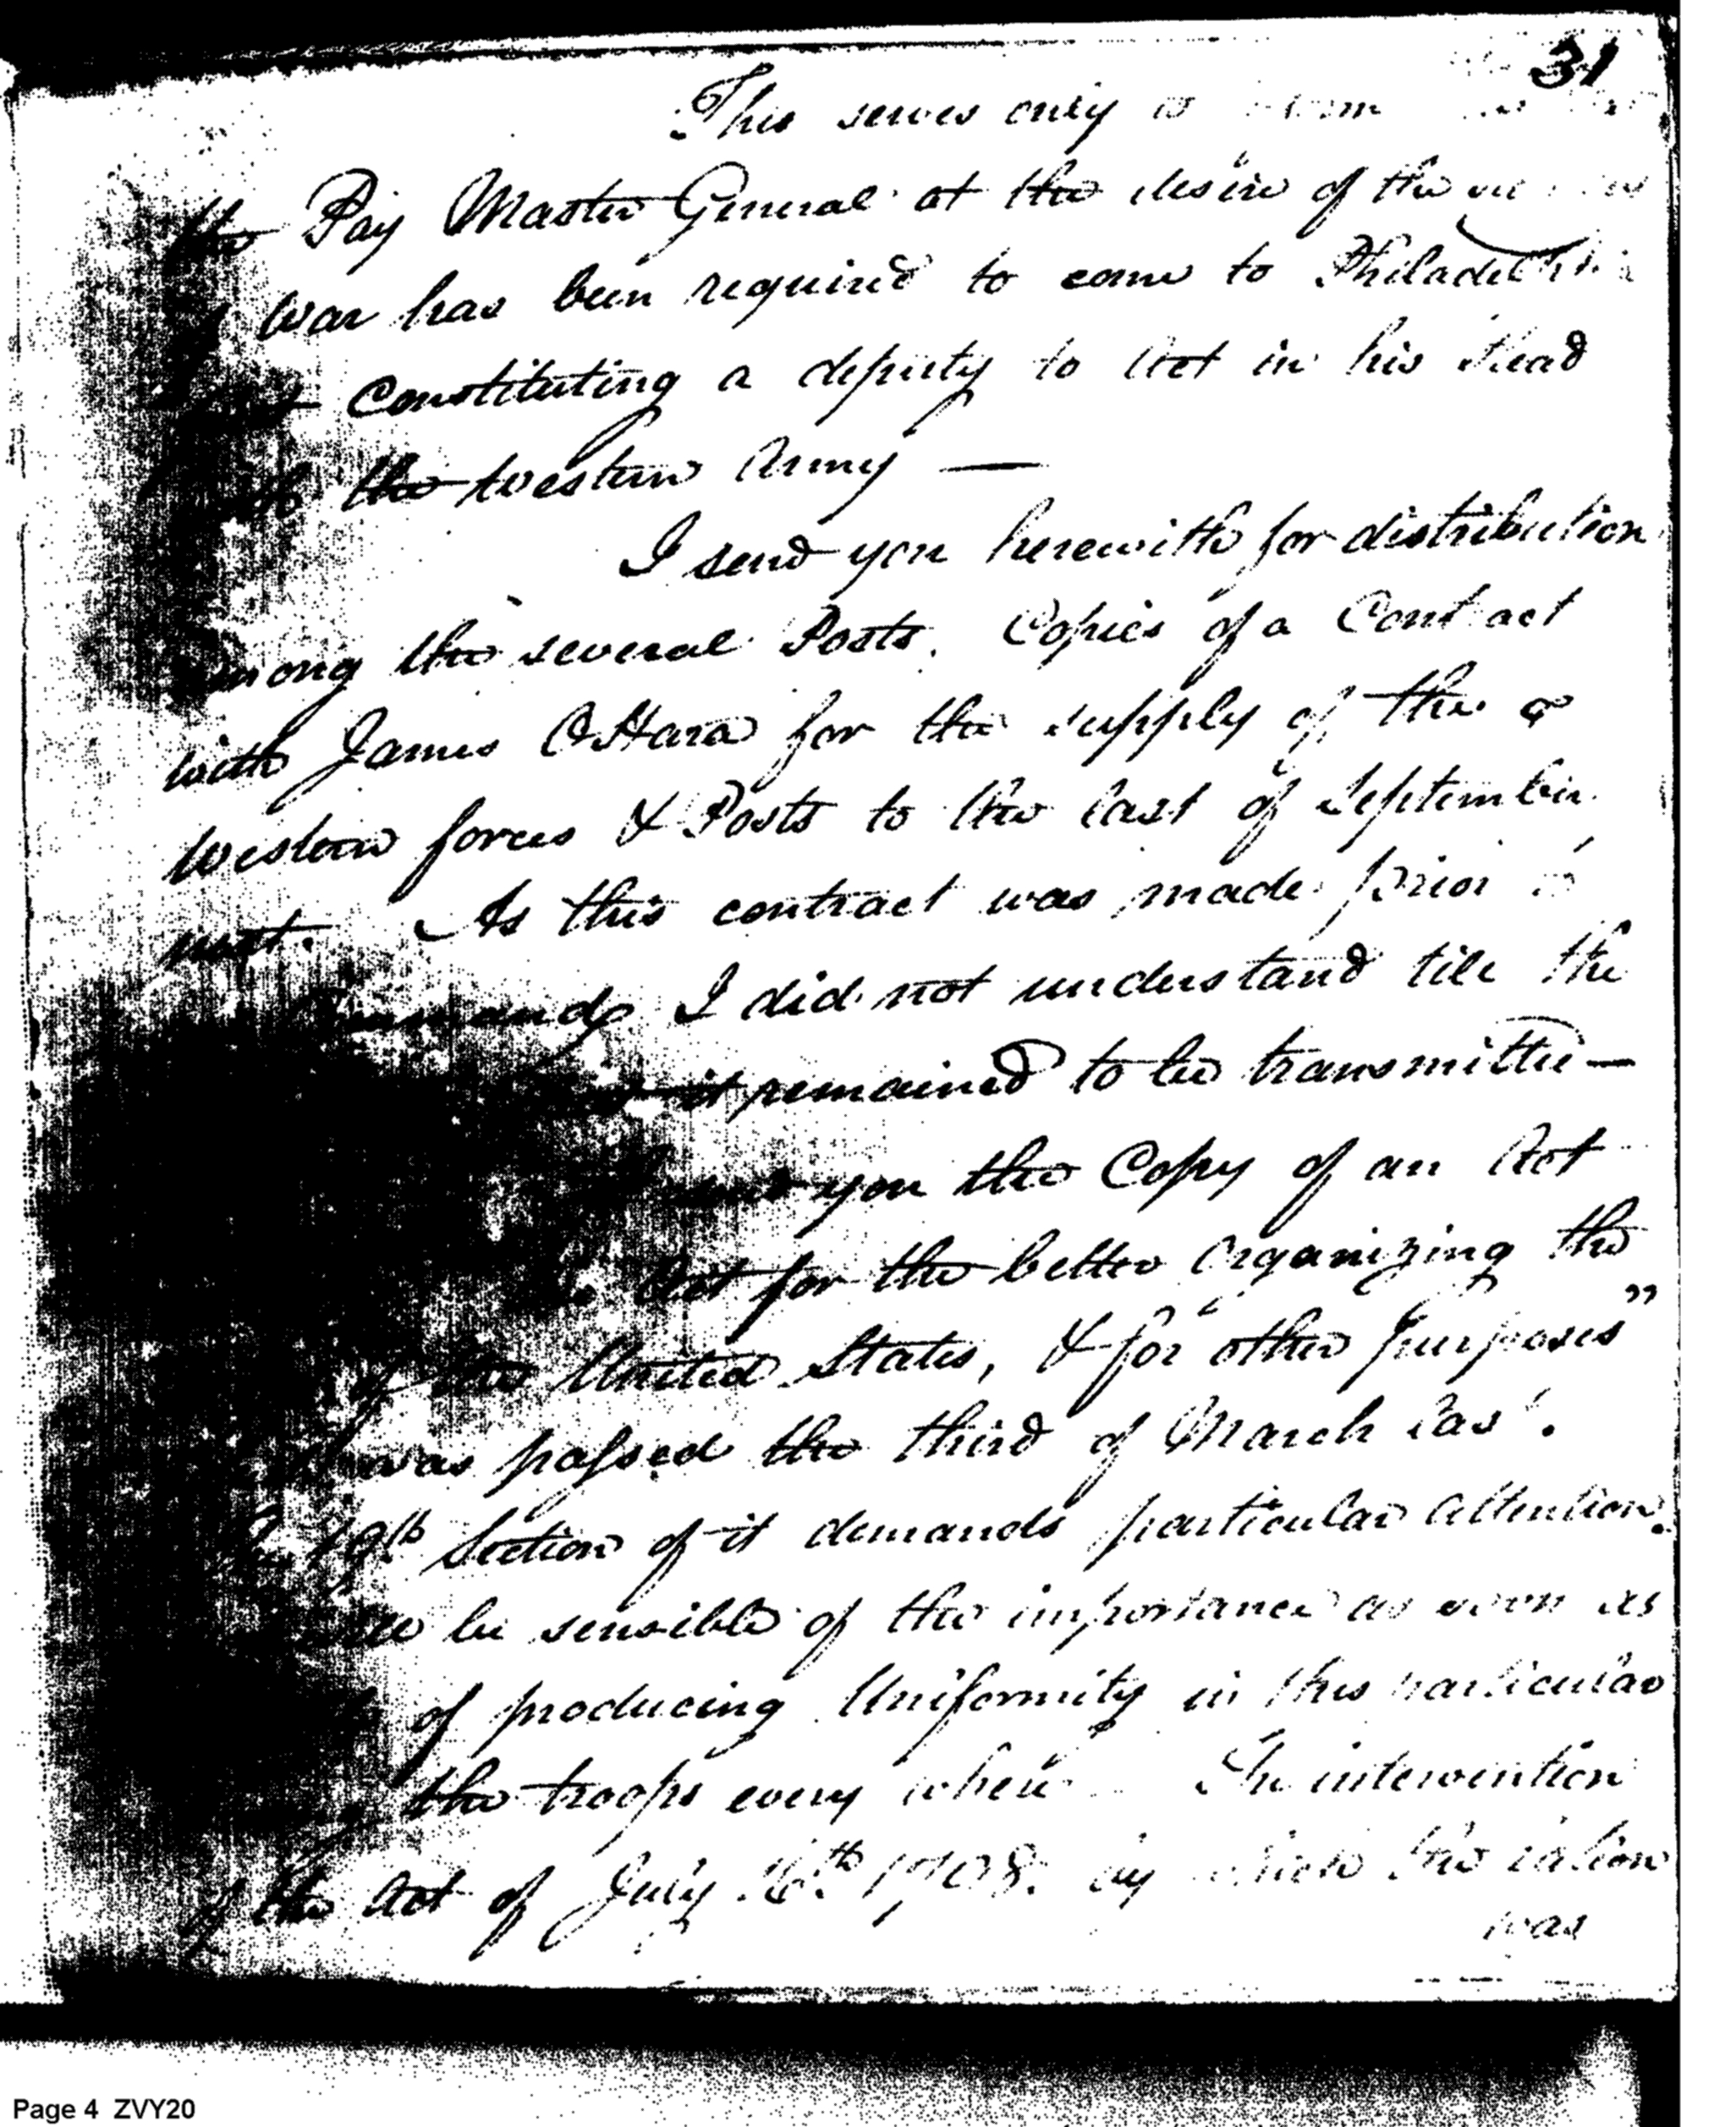 31
This serves only to
the Pay Master General at the desire of the
War has been required to come to Philadelphia
constituting a deputy to Act in his stead
with the western Army —
I send you herewith for distribution
among the several Posts. Copies of a Contract
with James OHara for the supply of the
Western forces & Posts to the last of September
next. As this contract was made prior to
I did not understand till the
it remained to be transmitted —
you the Copy of an Act
Act for the better organizing the
of the United States, & for other purposes"
was passed the third of March last.
The 19th Section of it demands particular attention.
be sensible of the importance as soon as
of producing Uniformity in this particular
the troops every where. The intervention
of the Act of July 16th 1798. by which the ration
was
Page 4 ZVY20